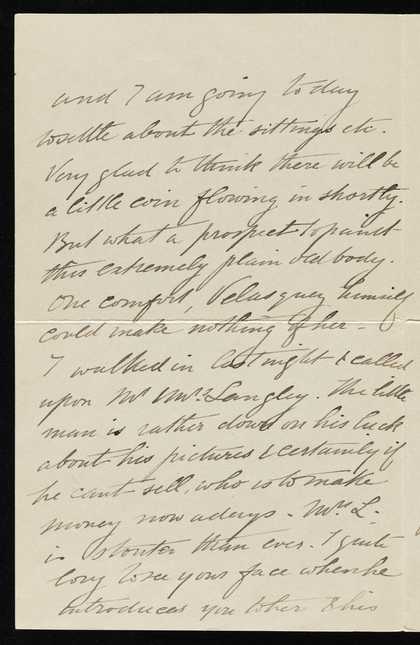 and I am going to day
to settle about the sittings etc.
Very glad to think there will be
a little coin flowing in shortly.
But what a prospect to paint
this extremely plain old body.
One comfort, Velasquez himself
could make nothing of her -
I walked in last night & called
upon Mr & Mrs Langley. The little
man is rather down on his luck
about his pictures & certainly if
he cant sell, who is to make
money now adays - Mrs L.
is stouter than ever. I quite
long to see your face when he
introduces you to her & his